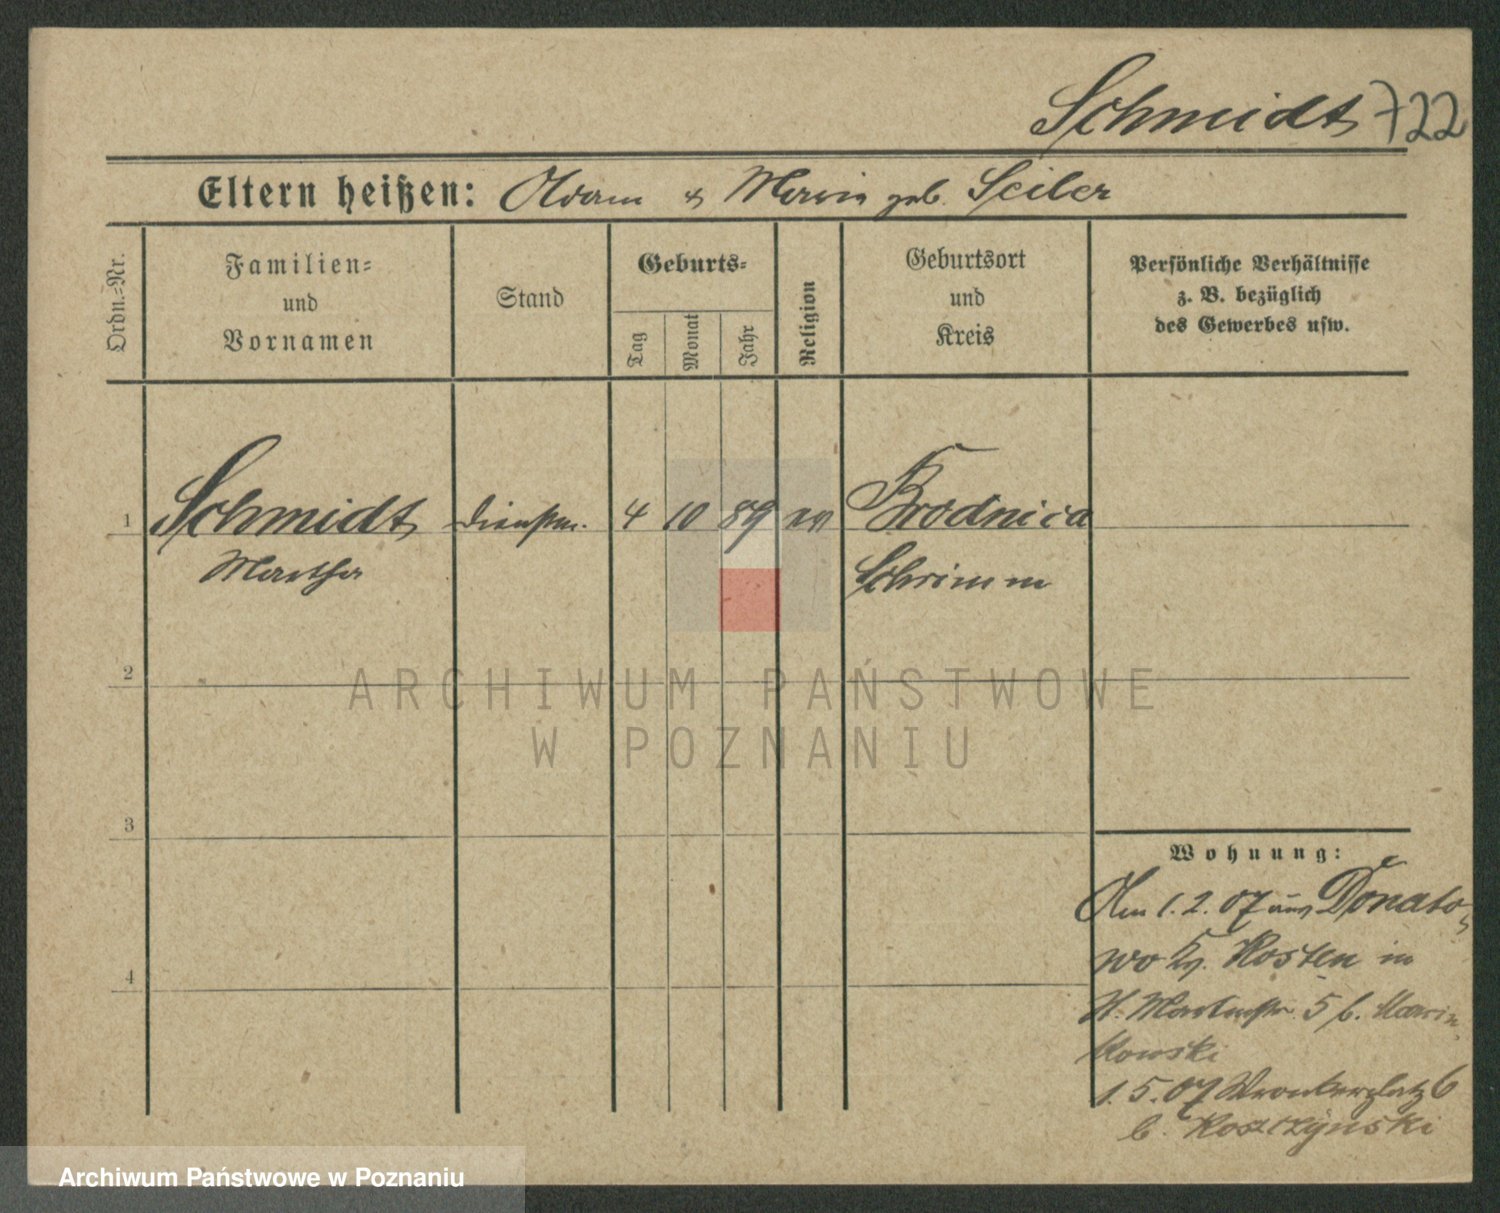 Schmidt 722
Eltern heißen: Adam & Maria geb. Seiler
Ordn.-Nr.
Familien-
und
Vornamen
Stand
Geburts-
Tag
Monat
Jahr
Religion
Geburtsort
und
Kreis
Persönliche Verhältnisse
z. B. bezüglich
des Gewerbes usw.
1 Schmidt dienstm. 4 10 89 ev Brodnica
Martha Schrimm
2
ARCHIWUM PAŃSTWOWE
W POZNANIU
3
Wohnung:
Am 1.2.07 aus Donato-
wo Kr. Kosten in
St. Martinstr. 5 b.
kowski
1.5.07 Wronkerplatz 6
b. Koszczynski
4
Archiwum Państwowe w Poznaniu